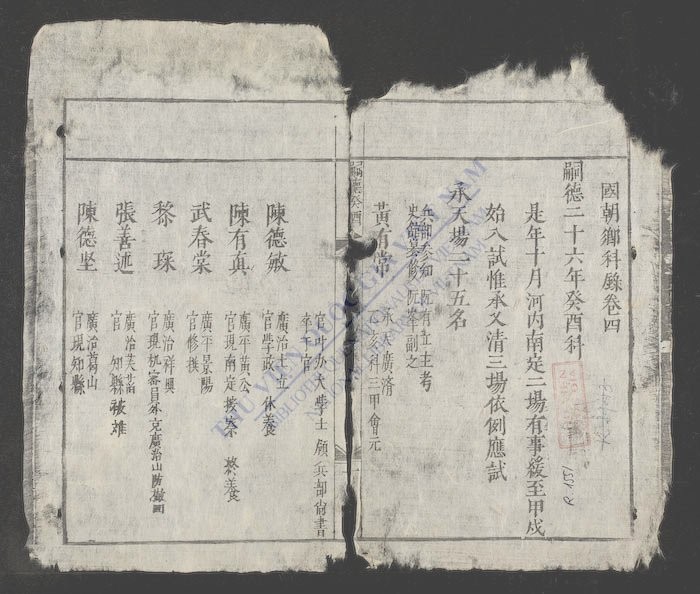 國朝鄉科錄卷四
嗣德二十六年癸酉科
是年十月河內南定二場有事緩至甲戌
始入試惟承乂清三場依例應試
承天場二十五名
兵部參知阮有立主考
史館纂修阮 副之
黃有常
承天廣濟
乙亥科三甲會元
嗣德癸酉
官 大學士領兵部尚書
卒官
陳德敏
廣治
官學政 休養
陳有真
廣平黃公
官現南定按察 終養
武春棠
廣平景陽
官修撰
黎珠
廣治祥興
官現机密員外充廣治山防
張善述
廣治芙蓉
官知縣 被雄
陳德堅
廣治葛山
官現知縣
THƯ VIỆN QUỐC GIA VIỆT NAM
R 1551